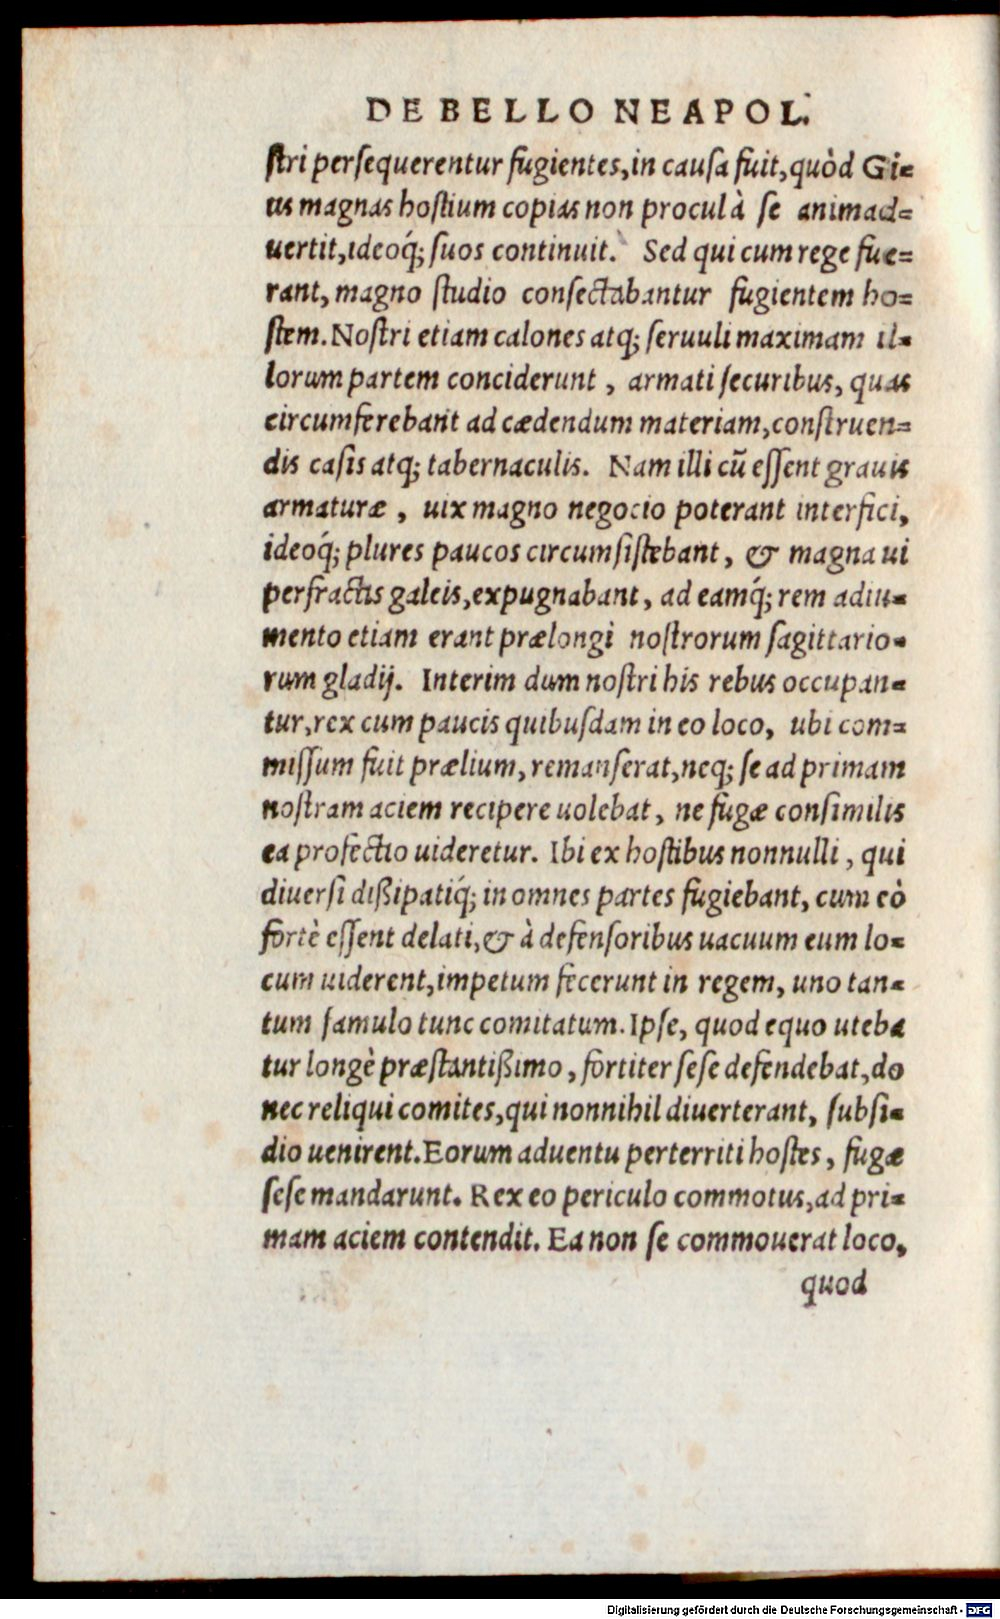 DE BELLO NEAPOL.
stri persequerentur fugientes, in causa fuit, quòd Gi=
us magnas hostium copias non procul à se animad=
uertit, ideoq́; suos continuit. Sed qui cum rege fue=
rant, magno studio consectabantur fugientem ho=
stem. Nostri etiam calones atq; seruuli maximam il=
lorum partem conciderunt, armati securibus, quas
circumferebant ad cædendum materiam, construen=
dis casis atq; tabernaculis. Nam illi cū essent grauis
armaturæ, uix magno negocio poterant interfici,
ideoq́; plures paucos circumsistebant, & magna ui
perfractis galeis, expugnabant, ad eamq́; rem adiu=
mento etiam erant prælongi nostrorum sagittario=
rum gladij. Interim dum nostri his rebus occupan=
tur, rex cum paucis quibusdam in eo loco, ubi com=
missum fuit prælium, remanserat, neq; se ad primam
nostram aciem recipere uolebat, ne fugæ consimilis
ea profectio uideretur. Ibi ex hostibus nonnulli, qui
diuersi dißipatiq́; in omnes partes fugiebant, cum eò
fortè essent delati, & à defensoribus uacuum eum lo=
cum uiderent, impetum fecerunt in regem, uno tan=
tum famulo tunc comitatum. Ipse, quod equo uteba
tur longè præstantißimo, fortiter sese defendebat, do
nec reliqui comites, qui nonnihil diuerterant, subsi=
dio uenirent. Eorum aduentu perterriti hostes, fugæ
sese mandarunt. Rex eo periculo commotus, ad pri=
mam aciem contendit. Ea non se commouerat loco,
quod
Digitalisierung gefördert durch die Deutsche Forschungsgemeinschaft - DFG